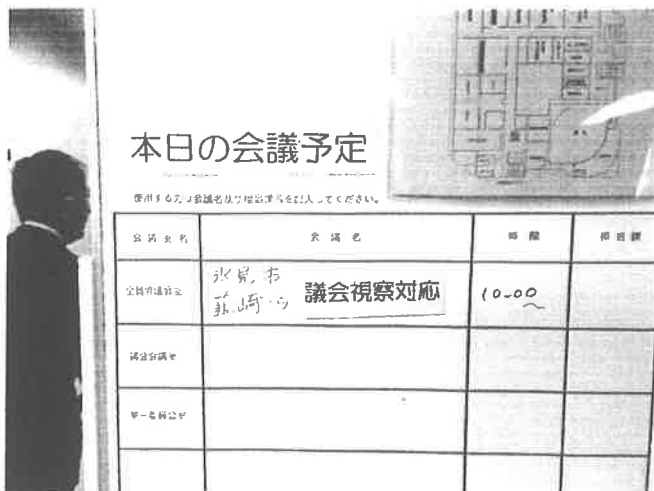 本日の会議予定
使用する方は会議名及び担当課名を記入してください。
会議室名 会議名 時間 担当課
全員協議会室 氷見市 韮崎市 議会視察対応 10-00〜
議会会議室
第一委員会室